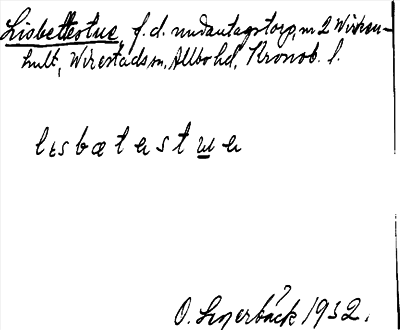 Lisbettestue, f. d. undantagstorp, n 2 Wirken-
hult, Wirestads sn, Allbo hd, Kronob. l.
lɩsbætɐstɯɐ
O. 1932.